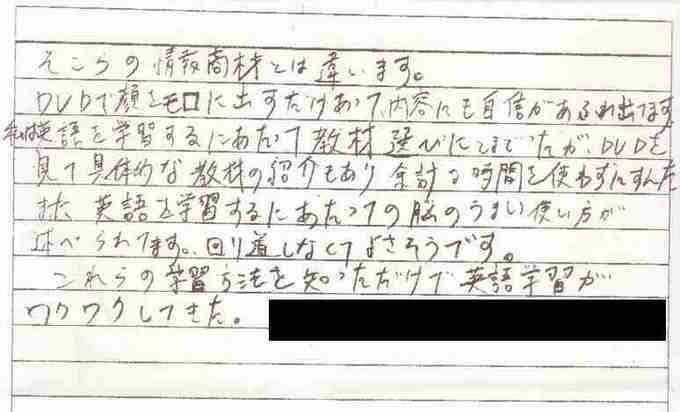 そこらの情報商材とは違います。
DVDで顔をモロに出すだけあって、内容にも自信があふれ出てます
私は英語を学習するにあたって教材選びにとまどったが、DVDを
見て具体的な教材の紹介もあり余計な時間を使わずにすんだ
また、英語を学習するにあたっての脳のうまい使い方が
述べられてます。回り道しなくてよさそうです。
これらの学習方法を知っただけで英語学習が
ワクワクしてきた。